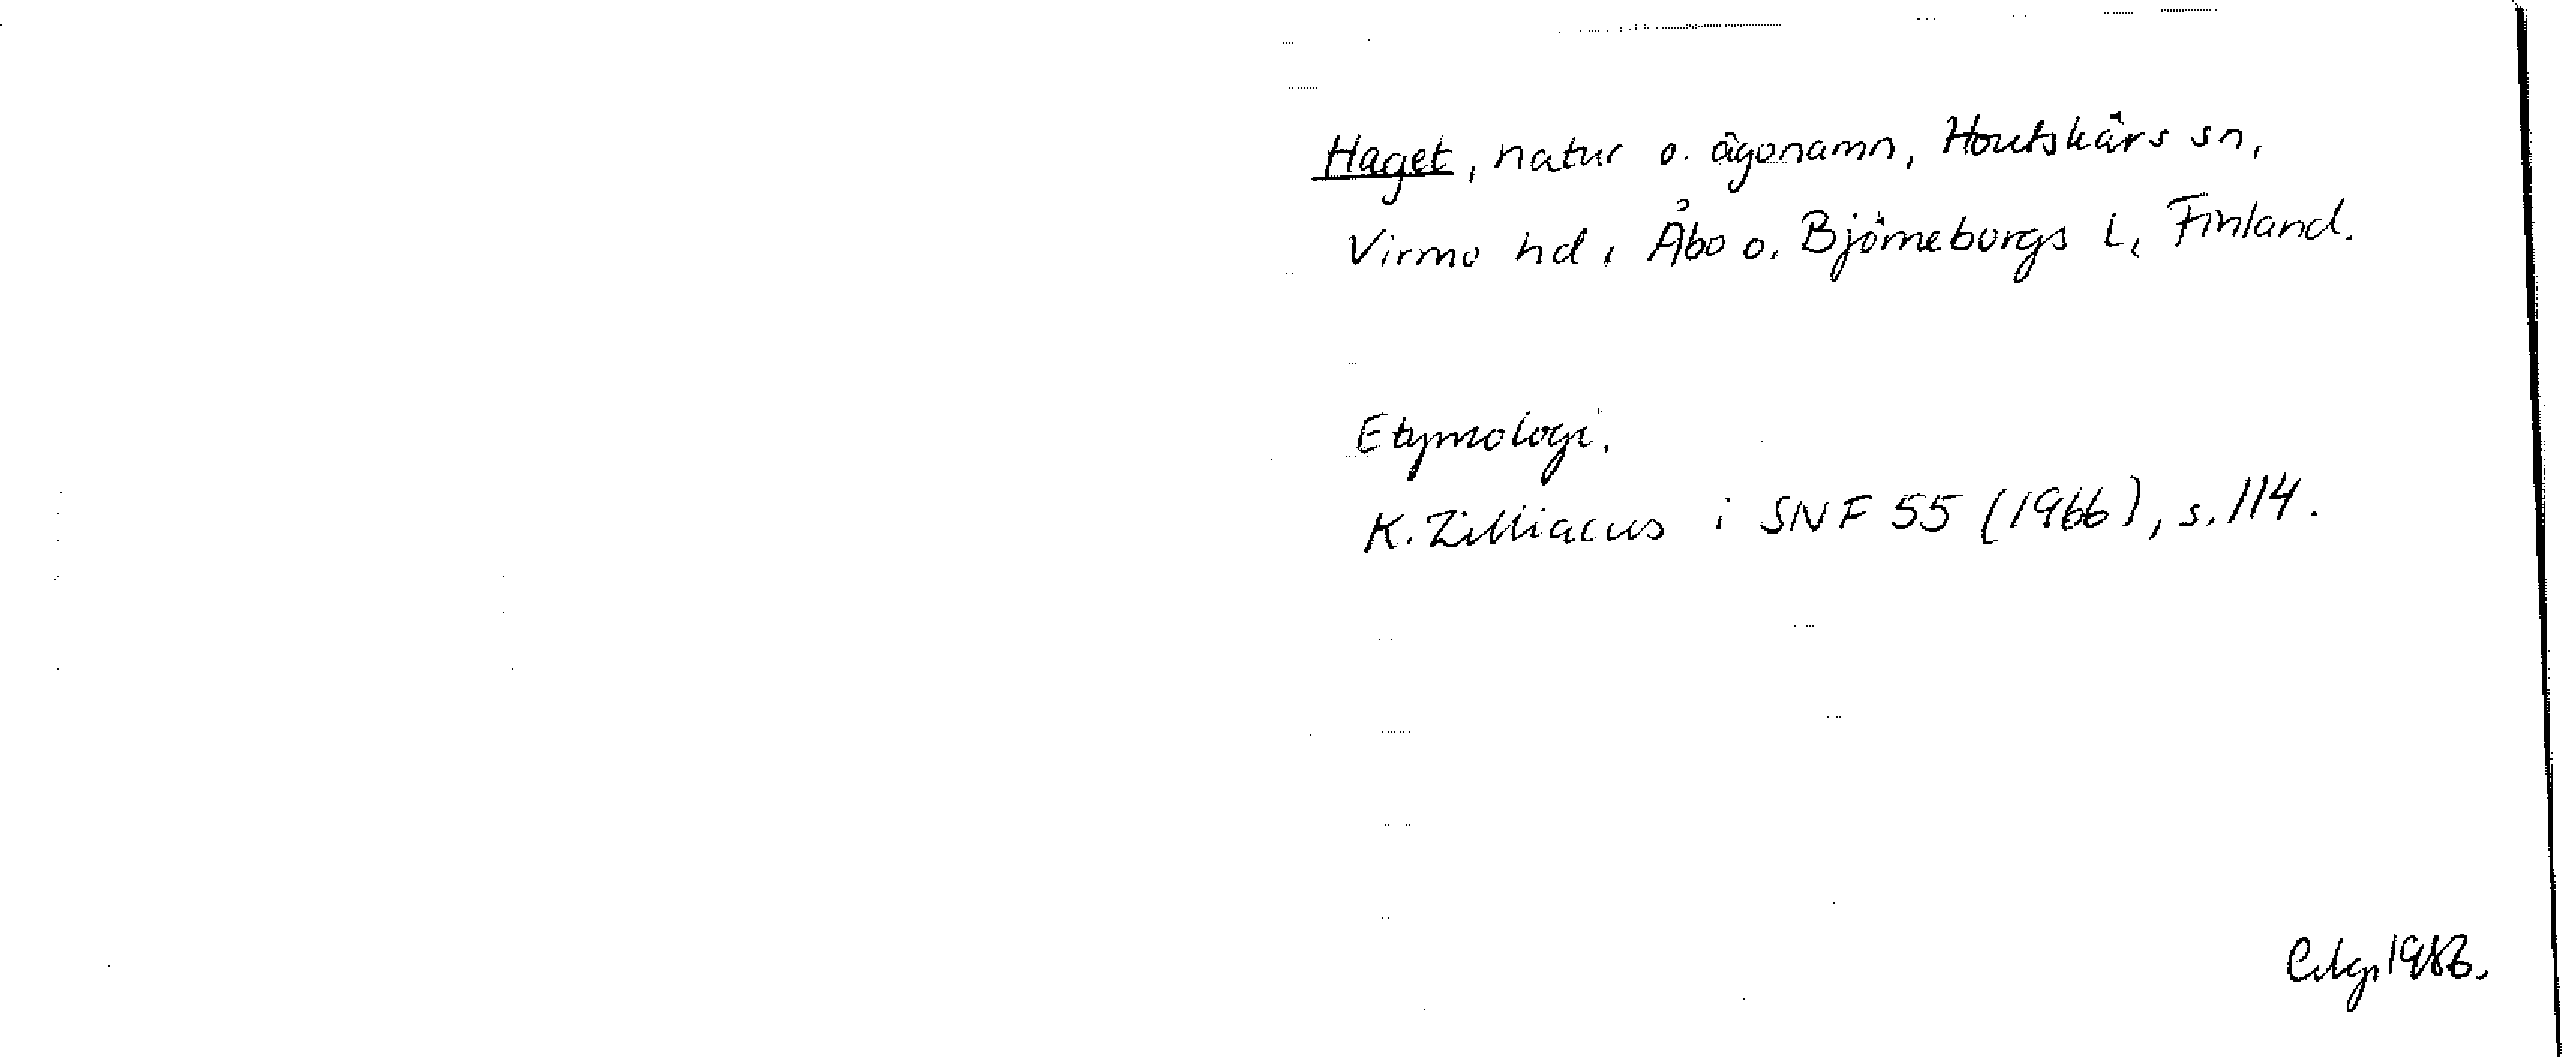 Haget, natur o. ägonamn, Houtskärs sn,
Virmo hd, Åbo o. Björneborgs L, Finland.
Etymologi.
K. Zilliacus i SNF 55 (1966), s. 114.